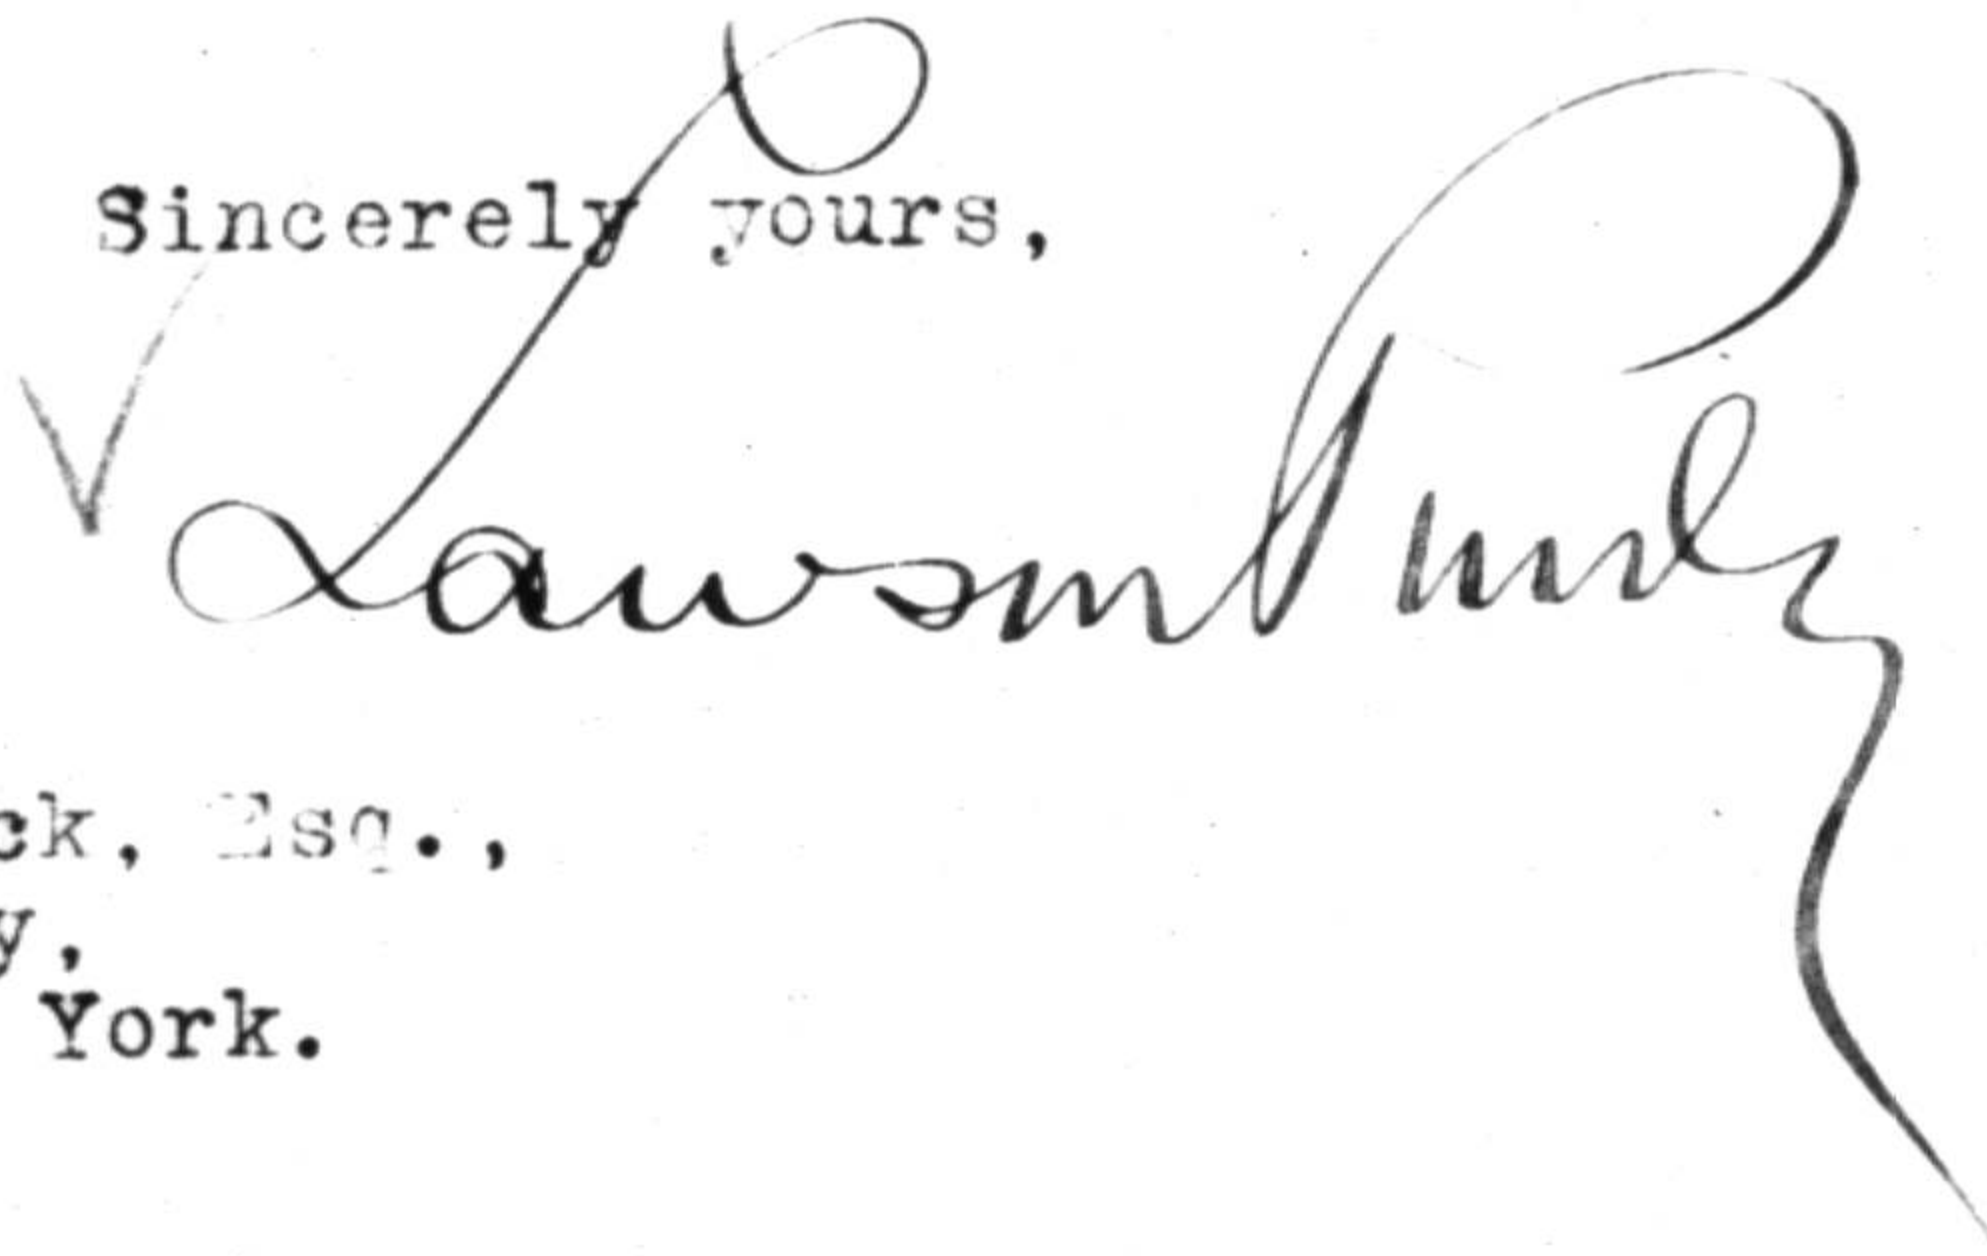 Sincerely yours,
Lawson Purdy
ck, Esq.,
y,
York.